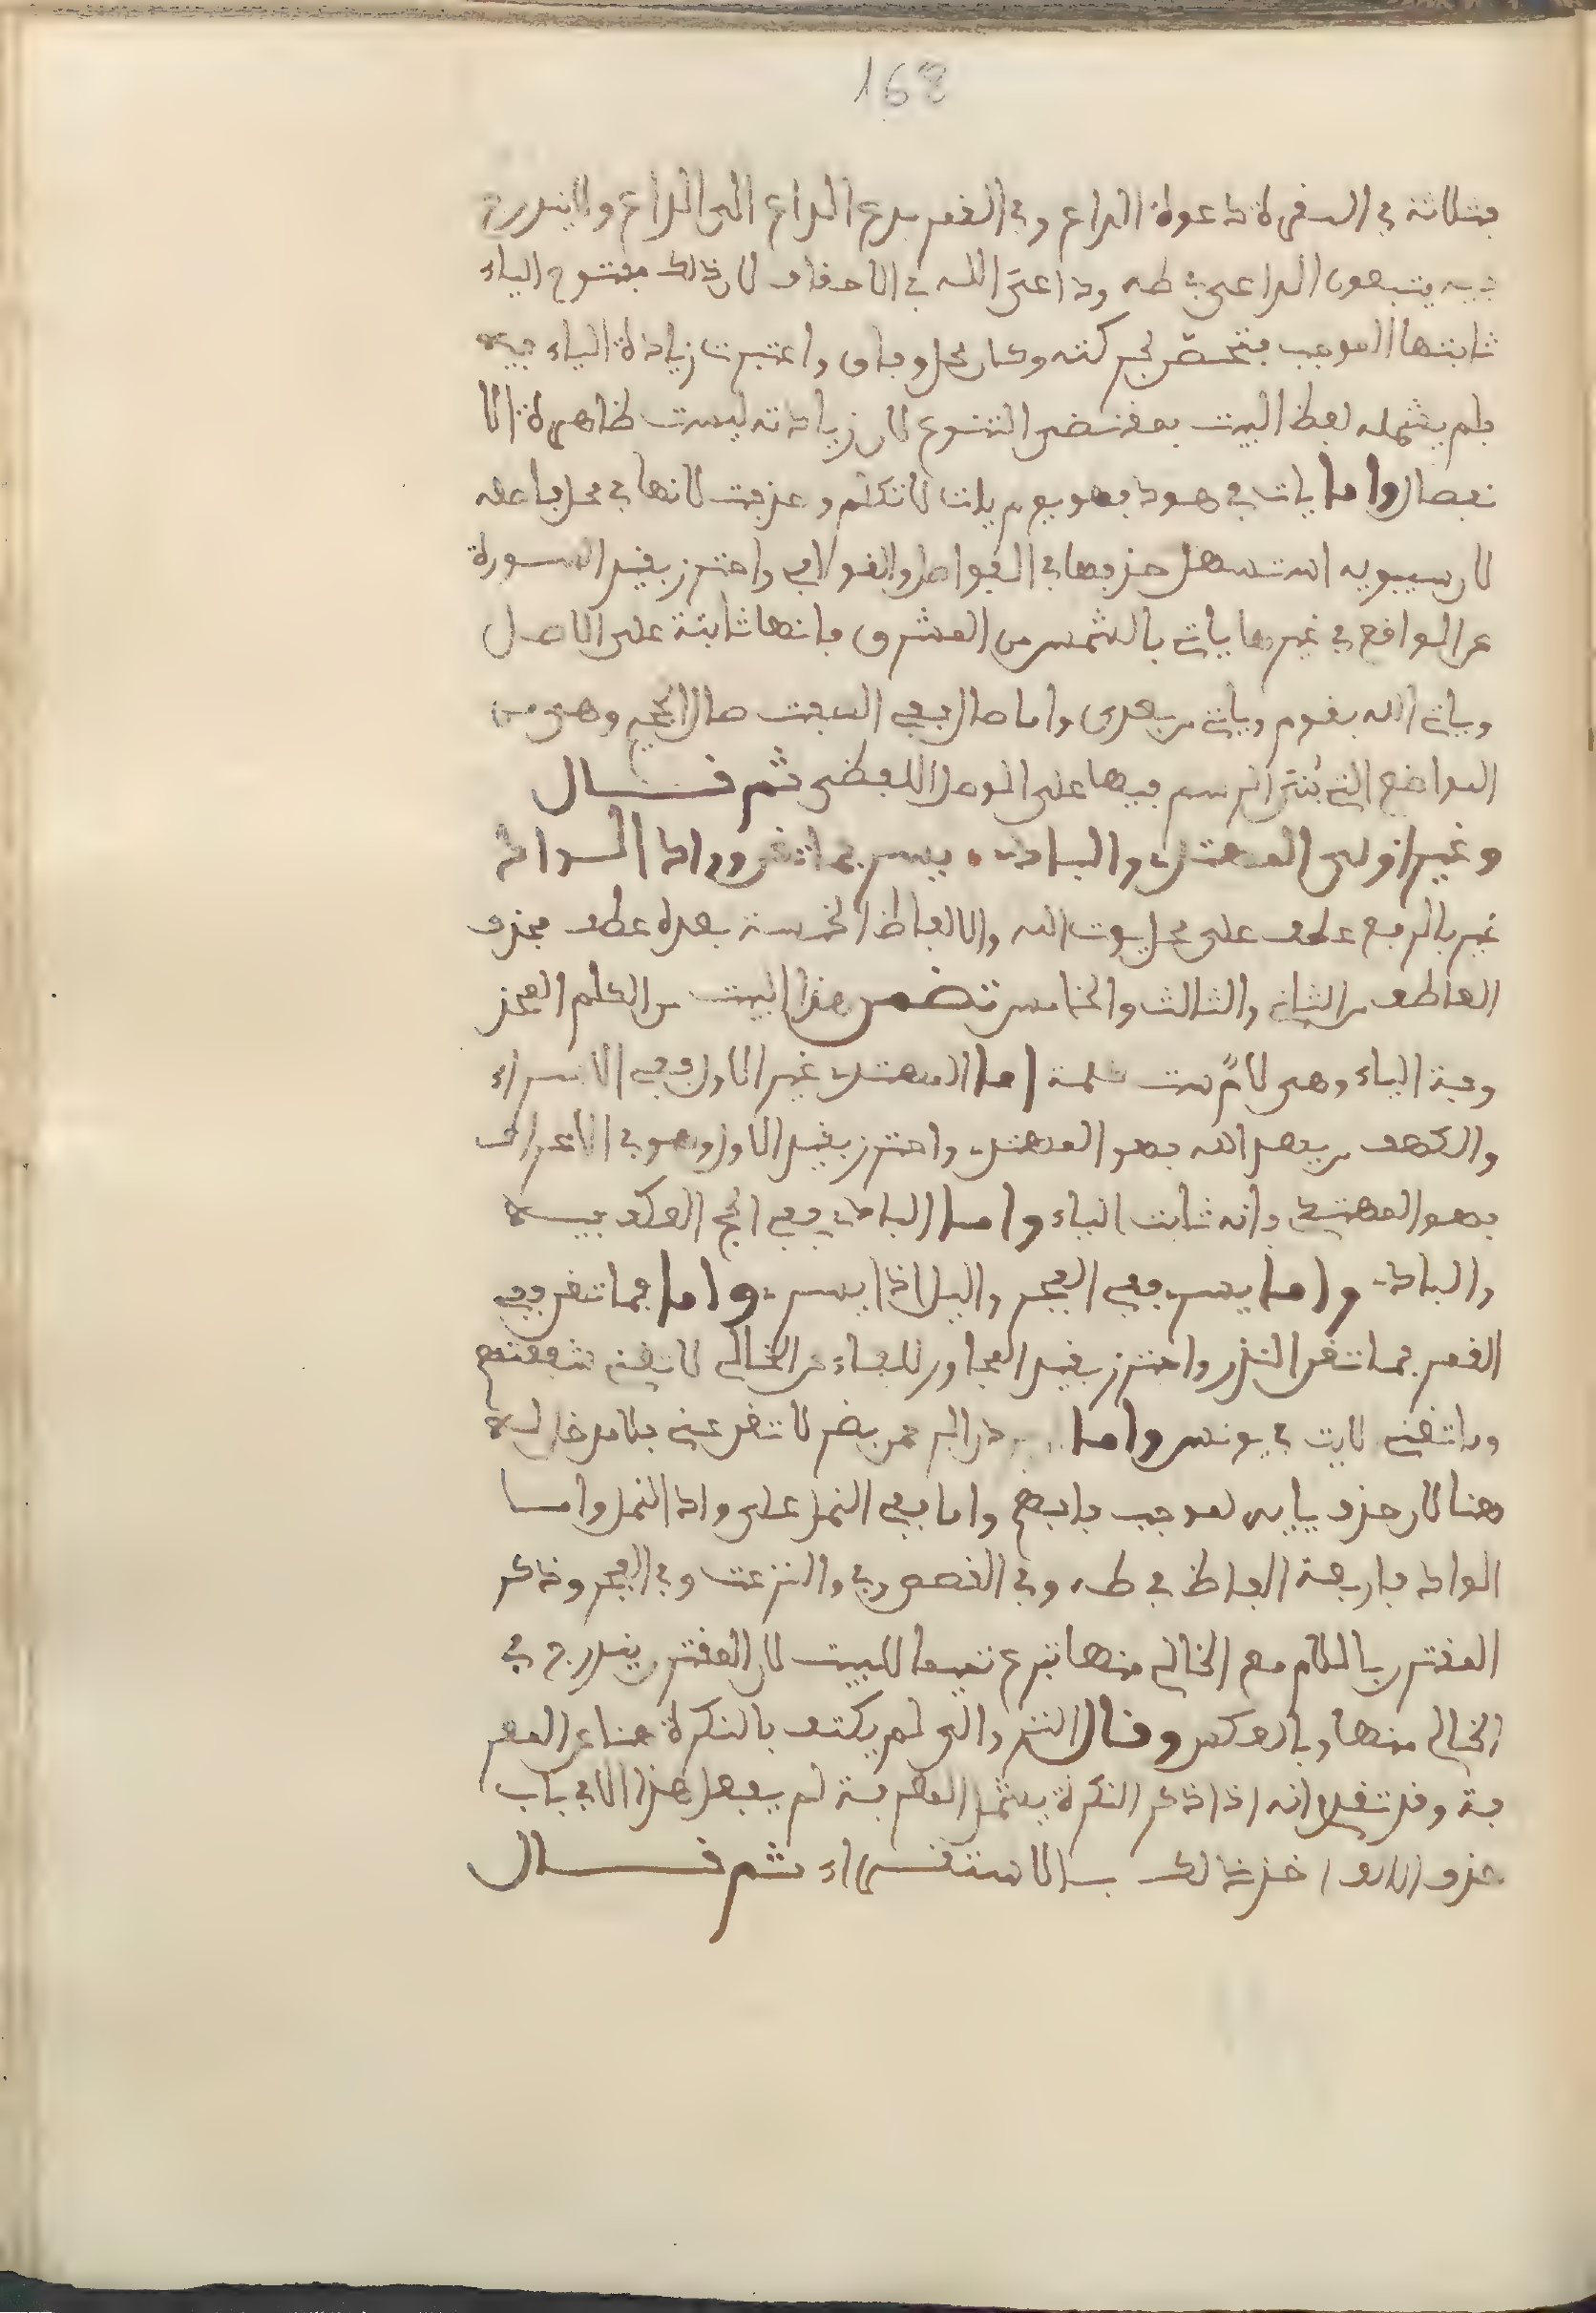 168
فثلاثة في البقرة دعوة الداع وفي القمر يدع الداع الى الداع ولا يندرج
فيه يتبعون الداعي في طه وداعي الله في الاحقاف لان ذلك مفتوح الياء
ثابتها الموجب لحركته وكان محل وفاق واعتبرت زيادة الياء فيه
فلم يشمله لفظ البيت بمقتضى التنوع لان زيادته ليست ظاهرة الا
نفصال واما يات في هود فهو يوم يات لا تكلم وحذفت لانها في محل
لان سيبويه استسهل حذفها في الفواصل والقوافي واحترز بقيد السورة
عن الواقع في غيرها ياتي بالشمس من المشرق فانها ثابتة على الاصل
وياتي الله بقوم وياتي من بعدي واما صال ففي الصفت صال الجحيم وهي من
المواضع التي الرسم فيها على الوصل اللفظي ثم قال
وغير اولى المهتد والباد يسر فما تغن وواد الواد
غير بالرفع عطف على محل يوت الله والالفاظ الخمسة بعده عطف بحذف
العاطف من الثاني والثالث والخامس تضمن هذا البيت من الكلم المحذ
وفة الياء وهي لام ست كلمة اما المهتد غير الاول ففي الاسراء
والكهف من يهد الله فهو المهتد واحترز بقيد الاول وهو في الاعراف
فهو المهتدي فانه ثابت الياء واما الباد ففي الحج العكف فيه
والباد واما يسر ففي الفجر واليل اذا يسر واما فما تغن ففي
القمر فما تغن النذر واحترز بقيد المجاور للفاء عن الخالي لا تغني شفعتهم
وما تغني الايت في يونس واما ان يردن الرحمن بضر لا تغن عني فلا مدخل له
هنا لان حذف يايه لموجب واضح واما ففي النمل على واد النمل واما
الواد فاربعة الفاظ في طه وفي القصص وفي والنزعت وفي الفجر وذكر
المقترن باللام مع الخالي منها تبرع تتميما للبيت لان المقترن يندرج في
الخالي منها وبالعكس وقال التنزوالي لم يكتف بالنكرة هنا عن المعر
فة وقد تقدم انه اذا ذكر النكرة يشمل المعرفة لم يفعل هذا الا في باب
حذف الالف اخذ ذلك بالاستقراء ثم قال